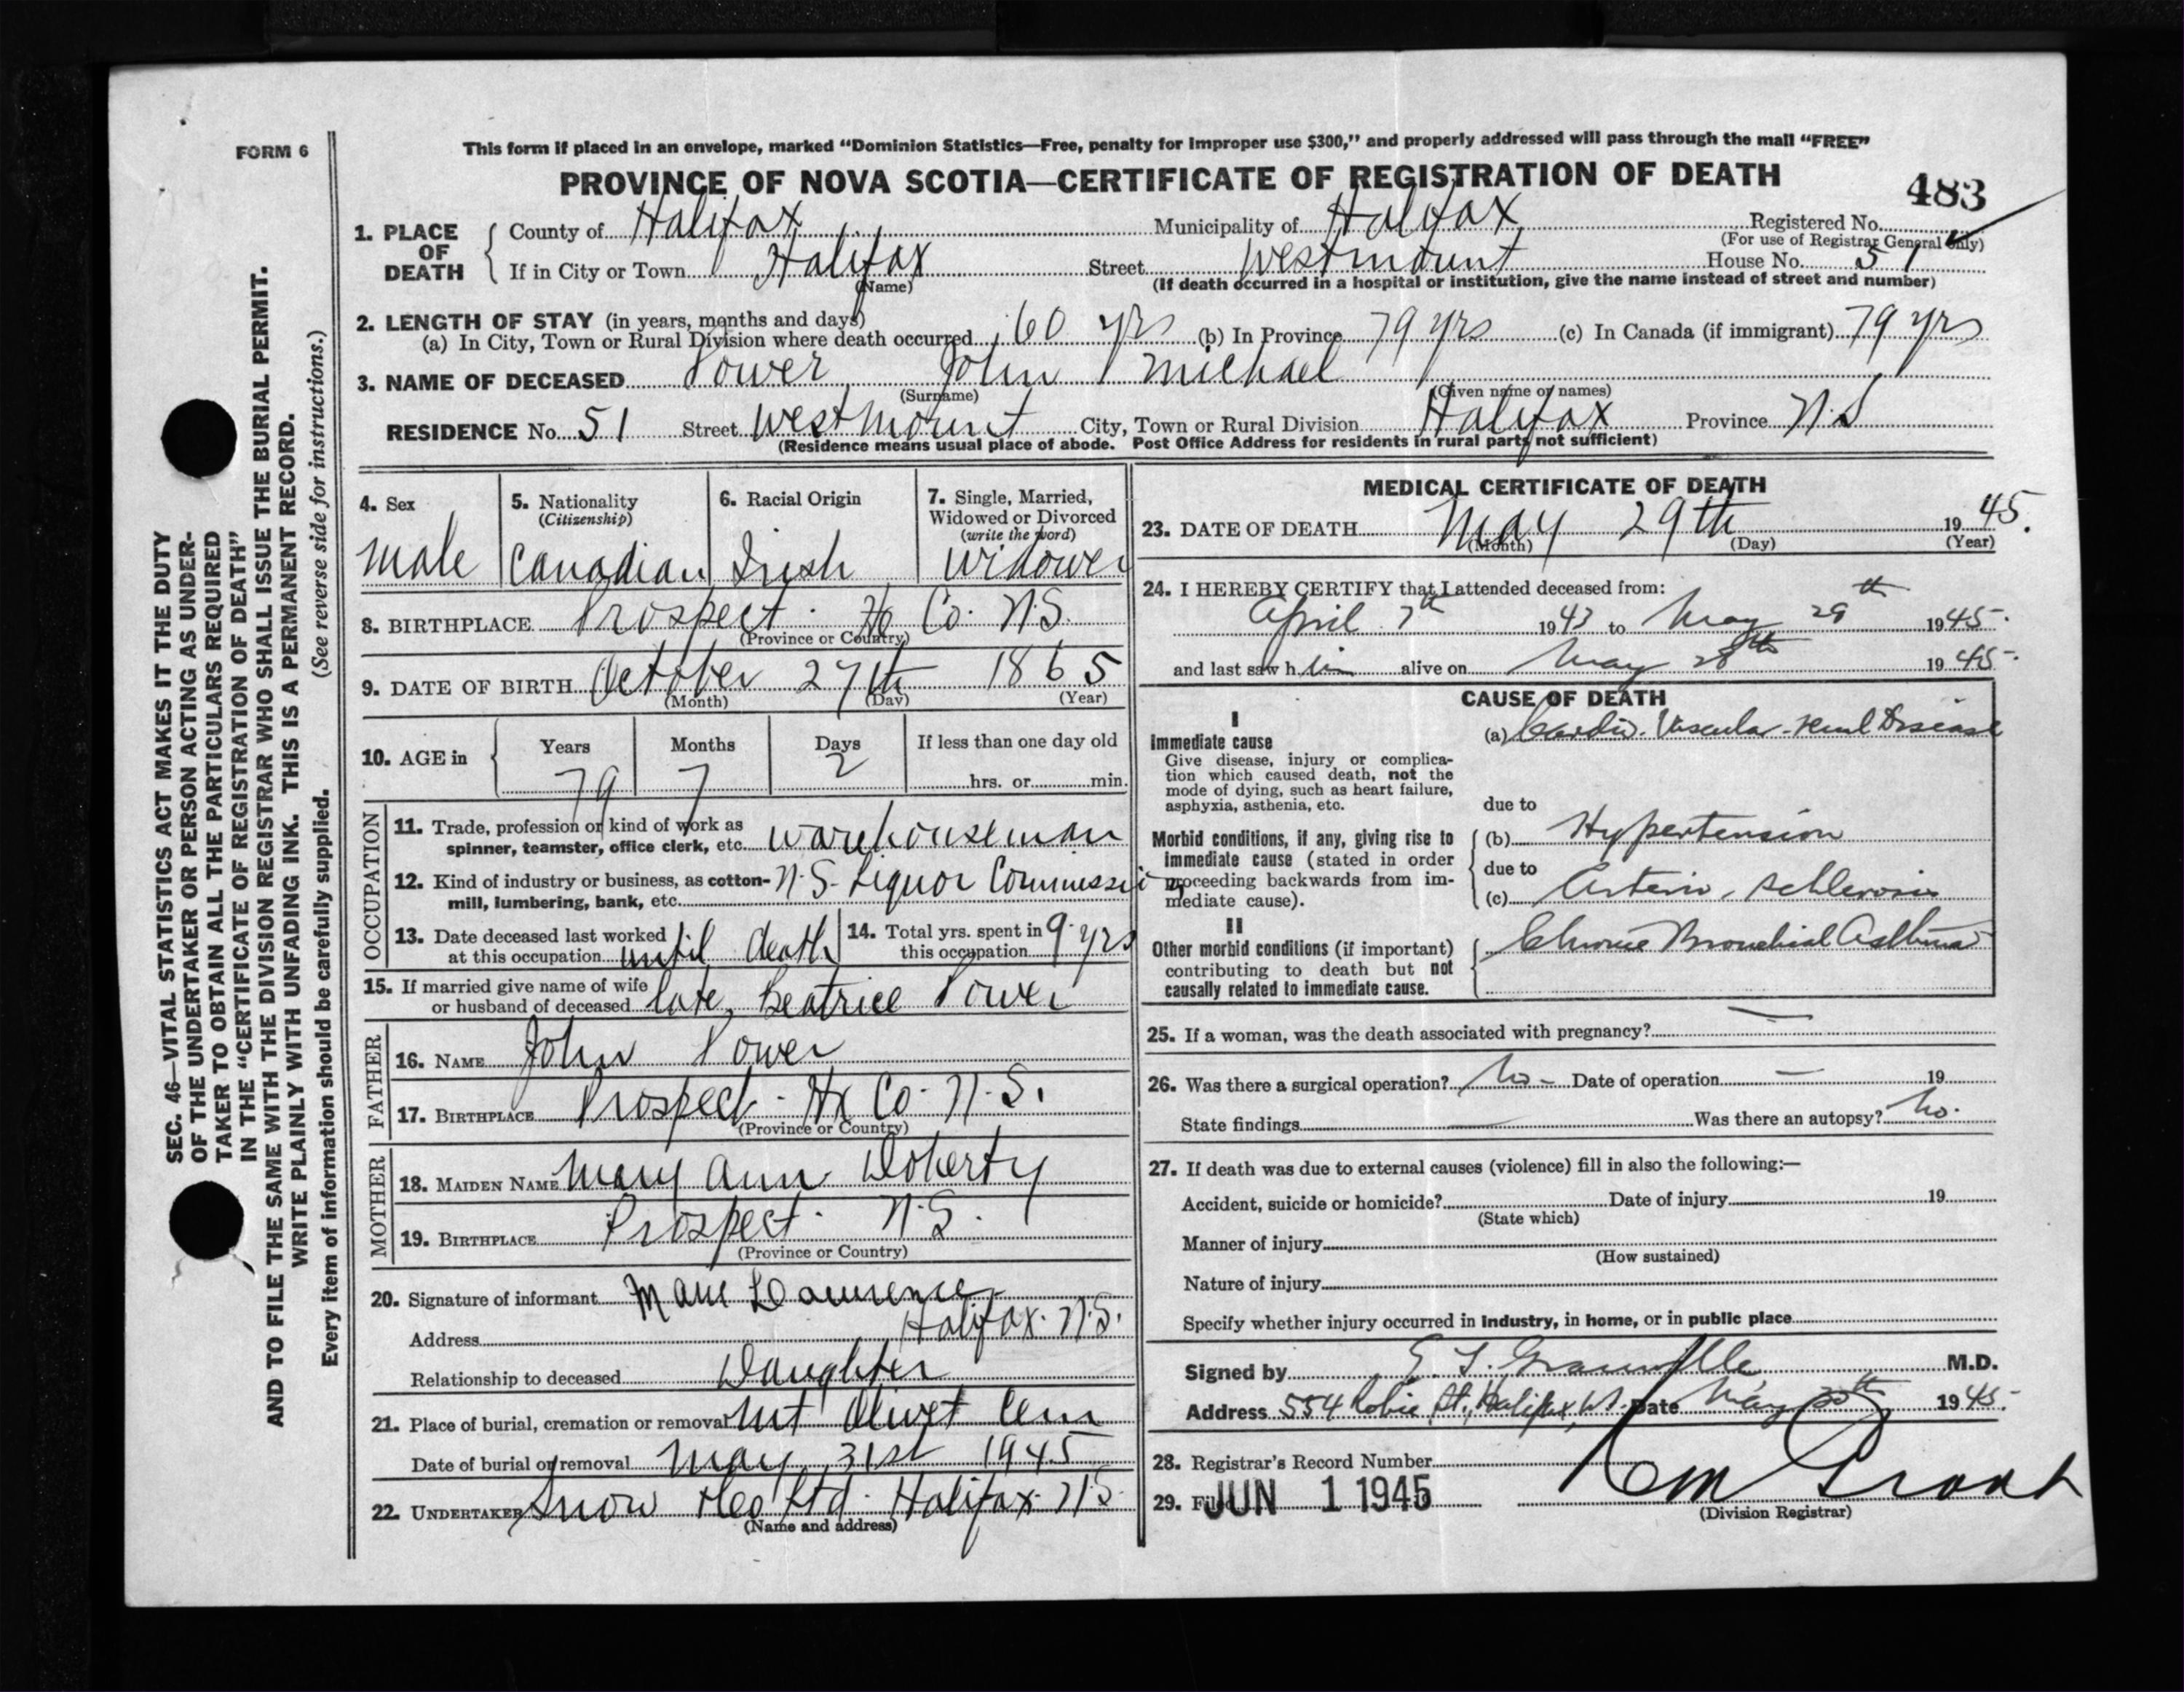 FORM 6
This form if placed in an envelope, marked "Dominion Statistics—Free, penalty for improper use $300," and properly addressed will pass through the mail "FREE"
PROVINCE OF NOVA SCOTIA—CERTIFICATE OF REGISTRATION OF DEATH
483
1. PLACE OF DEATH { County of Halifax Municipality of Halifax Registered No.
(For use of Registrar General only)
If in City or Town Halifax Street Westmount House No. 51
(Name) (If death occurred in a hospital or institution, give the name instead of street and number)
2. LENGTH OF STAY (in years, months and days)
(a) In City, Town or Rural Division where death occurred 60 yrs (b) In Province 79 yrs (c) In Canada (if immigrant) 79 yrs
3. NAME OF DECEASED Power John Michael
(Surname) (Given name or names)
RESIDENCE No. 51 Street Westmount City, Town or Rural Division Halifax Province N.S
(Residence means usual place of abode. Post Office Address for residents in rural parts not sufficient)
4. Sex
male
5. Nationality
(Citizenship)
Canadian
6. Racial Origin
Irish
7. Single, Married,
Widowed or Divorced
(write the word)
Widower
8. BIRTHPLACE Prospect. Hx Co. N.S.
(Province or Country)
9. DATE OF BIRTH October 27th 1865
(Month) (Day) (Year)
10. AGE in { Years Months Days If less than one day old
79 7 2 hrs. or min.
OCCUPATION
11. Trade, profession or kind of work as
spinner, teamster, office clerk, etc. warehouseman
12. Kind of industry or business, as cotton-
mill, lumbering, bank, etc. N.S. Liquor Commission
13. Date deceased last worked
at this occupation until death
14. Total yrs. spent in
this occupation 9 yrs
15. If married give name of wife
or husband of deceased late, Beatrice Power
FATHER
16. NAME John Power
17. BIRTHPLACE Prospect - Hx Co. N.S.
(Province or Country)
MOTHER
18. MAIDEN NAME Mary Ann Doherty
19. BIRTHPLACE Prospect. N.S.
(Province or Country)
20. Signature of informant Lawrence
Address Halifax. N.S.
Relationship to deceased Daughter
21. Place of burial, cremation or removal Mt Olivet Cem
Date of burial or removal May 31st 1945
22. UNDERTAKER Snow & Co Ltd. Halifax N.S.
(Name and address)
MEDICAL CERTIFICATE OF DEATH
23. DATE OF DEATH May 29th 1945.
(Month) (Day) (Year)
24. I HEREBY CERTIFY that I attended deceased from:
April 7th 1943 to May 29th 1945.
and last saw him alive on May 28th 1945.
CAUSE OF DEATH
I
Immediate cause
Give disease, injury or complica-
tion which caused death, not the
mode of dying, such as heart failure,
asphyxia, asthenia, etc.
(a) Cardio-Vascular-renal Disease
due to
Morbid conditions, if any, giving rise to
immediate cause (stated in order
proceeding backwards from im-
mediate cause).
(b) Hypertension
due to
(c) Arterio-schlerosis
II
Other morbid conditions (if important)
contributing to death but not
causally related to immediate cause.
Chronic Bronchial Asthma
25. If a woman, was the death associated with pregnancy? —
26. Was there a surgical operation? No — Date of operation — 19
State findings — Was there an autopsy? No.
27. If death was due to external causes (violence) fill in also the following:—
Accident, suicide or homicide? Date of injury 19
(State which)
Manner of injury
(How sustained)
Nature of injury
Specify whether injury occurred in industry, in home, or in public place
Signed by E. Granville M.D.
Address 554 Robie St., Halifax, N.S. Date May 30th 1945.
28. Registrar's Record Number
29. Filed JUN 1 1945
(Division Registrar)
SEC. 46—VITAL STATISTICS ACT MAKES IT THE DUTY
OF THE UNDERTAKER OR PERSON ACTING AS UNDER-
TAKER TO OBTAIN ALL THE PARTICULARS REQUIRED
IN THE "CERTIFICATE OF REGISTRATION OF DEATH"
AND TO FILE THE SAME WITH THE DIVISION REGISTRAR WHO SHALL ISSUE THE BURIAL PERMIT.
WRITE PLAINLY WITH UNFADING INK. THIS IS A PERMANENT RECORD.
Every item of information should be carefully supplied. (See reverse side for instructions.)